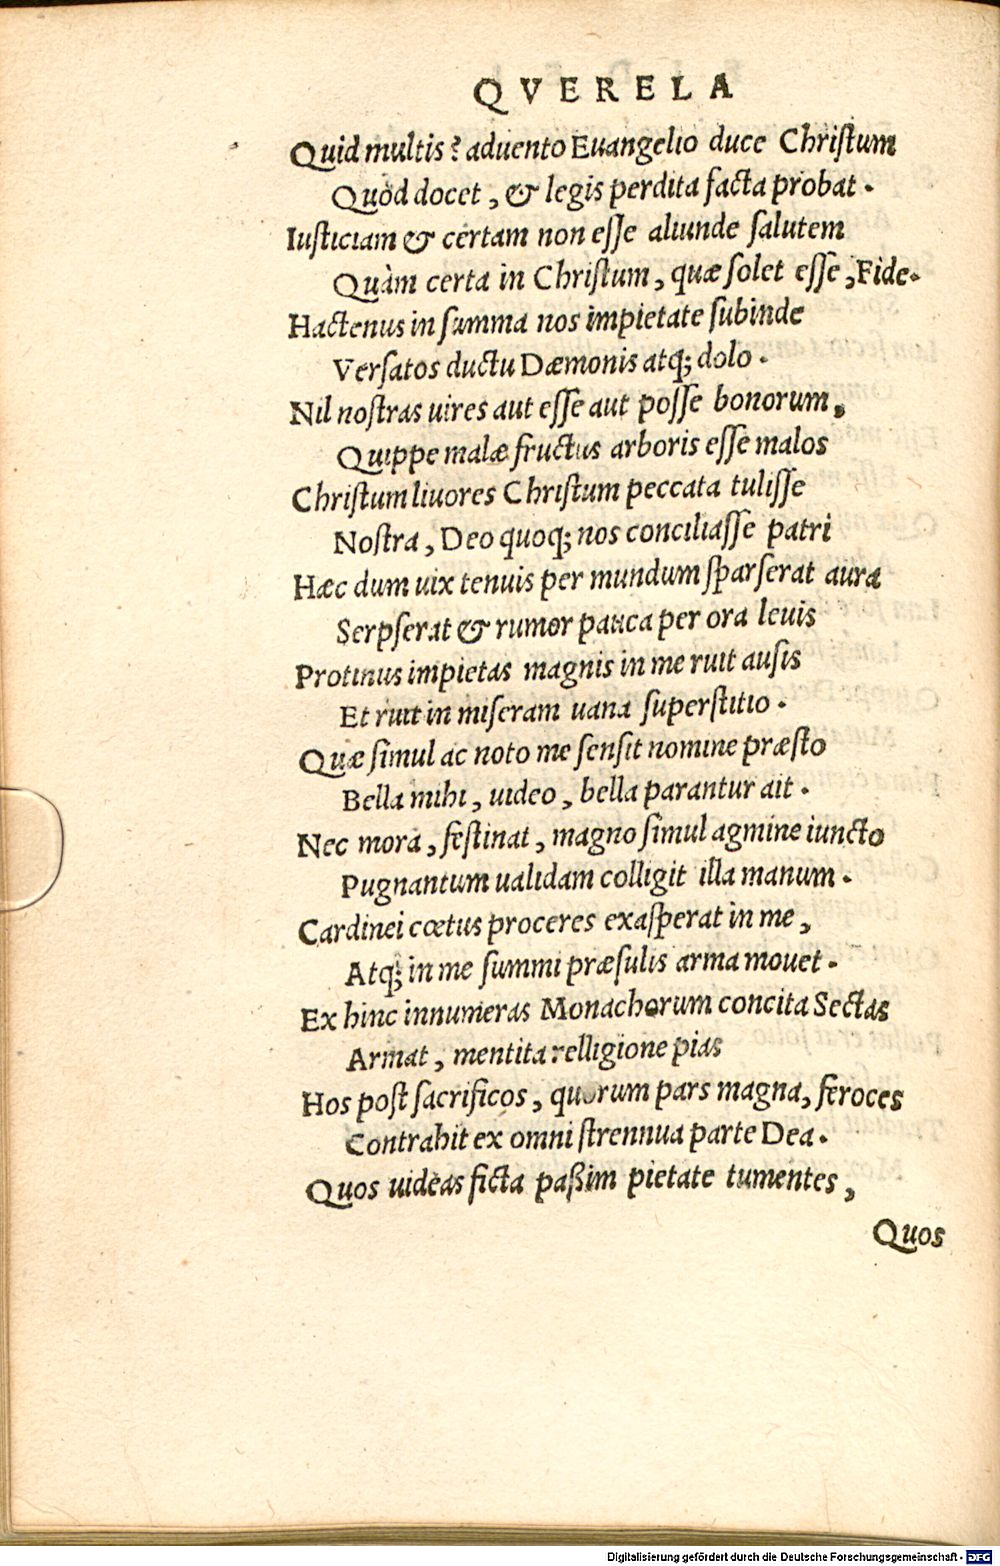 QVERELA
Quid multis? aduento Euangelio duce Christum
Quòd docet, & legis perdita facta probat.
Iusticiam & certam non esse aliunde salutem
Quàm certa in Christum, quæ solet esse, Fide.
Hactenus in summa nos impietate subinde
Versatos ductu Dæmonis atq; dolo.
Nil nostras uires aut esse aut posse bonorum,
Quippe malæ fructus arboris esse malos
Christum liuores Christum peccata tulisse
Nostra, Deo quoq; nos conciliasse patri
Hæc dum uix tenuis per mundum sparserat aura
Serpserat & rumor pauca per ora leuis
Protinus impietas magnis in me ruit ausis
Et ruit in miseram uana superstitio.
Quæ simul ac noto me sensit nomine præsto
Bella mihi, uideo, bella parantur ait.
Nec mora, festinat, magno simul agmine iuncto
Pugnantum ualidam colligit illa manum.
Cardinei cœtus proceres exasperat in me,
Atq; in me summi præsulis arma mouet.
Ex hinc innumeras Monachorum concita Sectas
Armat, mentita relligione pias
Hos post sacrificos, quorum pars magna, feroces
Contrahit ex omni strennua parte Dea.
Quos uideas ficta paßim pietate tumentes,
Quos
Digitalisierung gefördert durch die Deutsche Forschungsgemeinschaft - DFG